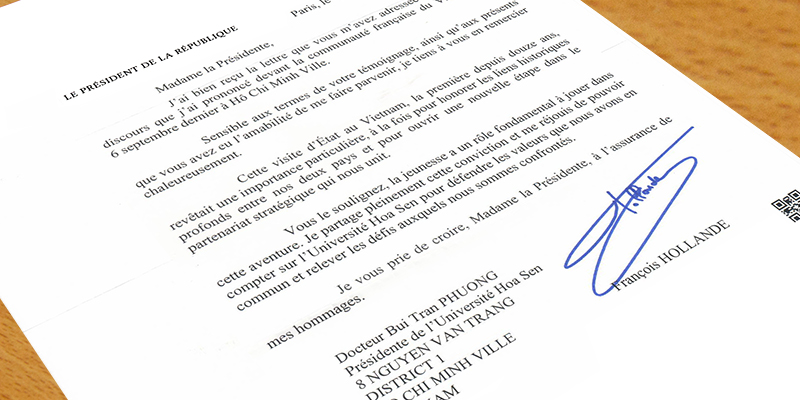 LE PRÉSIDENT DE LA RÉPUBLIQUE
Paris, le
Madame la Présidente,
J'ai bien reçu la lettre que vous m'avez adressée
discours que j'ai prononcé devant la communauté française du
6 septembre dernier à Hô Chi Minh Ville.
Sensible aux termes de votre témoignage, ainsi qu'aux présents
que vous avez eu l'amabilité de me faire parvenir, je tiens à vous en remercier
chaleureusement.
Cette visite d'État au Vietnam, la première depuis douze ans,
revêtait une importance particulière, à la fois pour honorer les liens historiques
profonds entre nos deux pays et pour ouvrir une nouvelle étape dans le
partenariat stratégique qui nous unit.
Vous le soulignez, la jeunesse a un rôle fondamental à jouer dans
cette aventure. Je partage pleinement cette conviction et me réjouis de pouvoir
compter sur l'Université Hoa Sen pour défendre les valeurs que nous avons en
commun et relever les défis auxquels nous sommes confrontés.
Je vous prie de croire, Madame la Présidente, à l'assurance de
mes hommages.
François HOLLANDE
Docteur Bui Tran PHUONG
Présidente de l'Université Hoa Sen
8 NGUYEN VAN TRANG
DISTRICT 1
CHI MINH VILLE